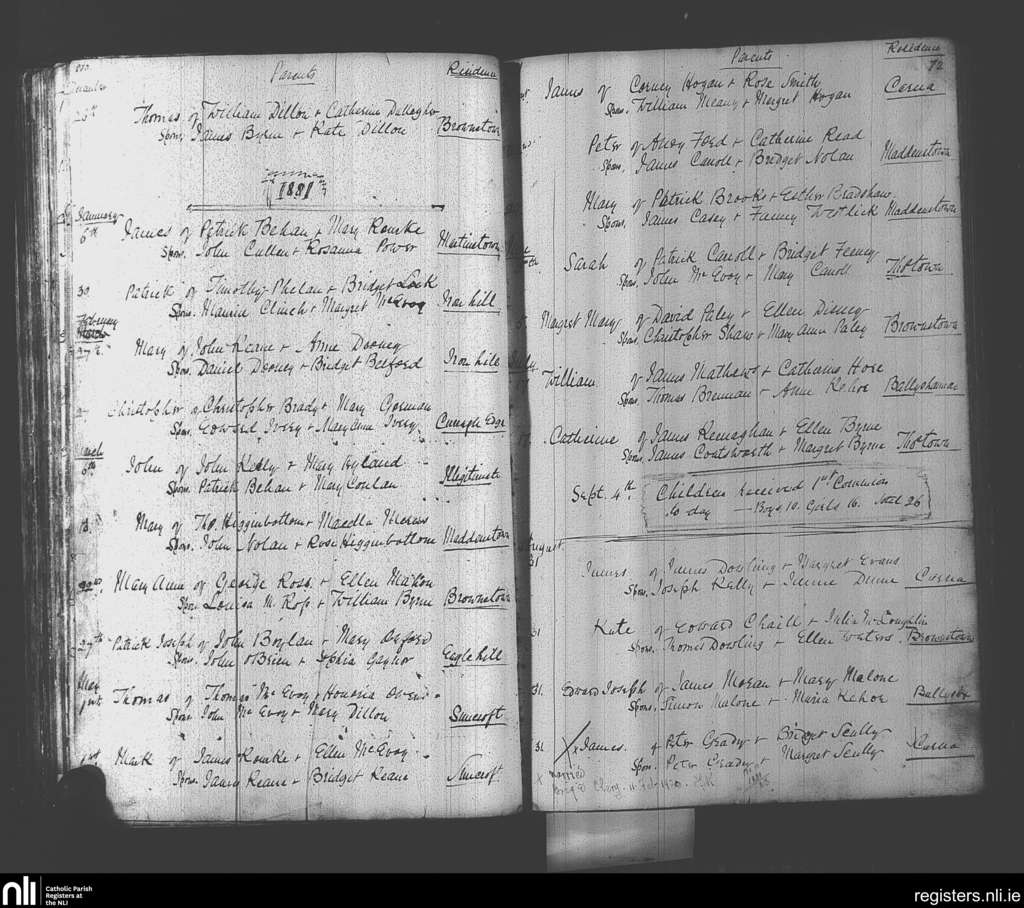 Parents Residence
December
Thomas of William Dillon + Catherine Dallagher
Spons. James Byrne + Kate Dillon Brownstown
1881
January
6th James of Patrick Behan + Mary Rourke
Spons. John Cullen + Rosanna Power Martinstown
30 Patrick of Timothy Phelan + Bridget Lack
Spons. Maurice Clinch + Margret McEvoy Iron hill
February
27th Mary of John Keane + Anne Dooney
Spons. Daniel Dooney + Bridget Belford Iron hill
27 Christopher of Christopher Brady + Mary Gorman
Spons. Edward Ivery + Mary Anne Ivery Curragh Edge
March
6th John of John Kelly + Mary Hyland
Spons. Patrick Behan + Mary Conlan Illigitimate
13. Mary of Thos. Higginbottom +
Spons. John Nolan + Rose Higginbottom Maddenstown
22nd. Mary Anne of George Ross + Ellen Mahon
Spons. Louisa M. Ross + William Byrne Brownstown
27th Patrick Joseph of John Boylan + Mary Oxford
Spons. John O'Brien + Sophia Gaynor Eagle hill
May
1st Thomas of Thomas McEvoy + Honoria
Spons. John McEvoy + Mary Dillon Suncroft
1st Mark of James Rourke + Ellen McEvoy
Spons. James Keane + Bridget Keane Suncroft
Parents Residence
72
James of Corney Hogan + Rose Smith
Spons. William Meany + Margret Hogan Corna
Peter of Andy Ford + Catherine Read
Spons. James Carroll + Bridget Nolan Maddenstown
Mary of Patrick Brooks + Esther Bradshaw
Spons. James Casey + Fanny Maddenstown
Sarah of Patrick Carroll + Bridget Feeney
Spons. John McEvoy + Mary Carroll Thostown
Margret Mary of David Paley + Ellen Disney
Spons. Christopher Shaw + Mary Anne Paley Brownstown
William of James Mathews + Catharine Hore
Spons. Thomas Brennan + Anne Kehoe Ballyshannon
Catherine of James Kernaghan + Ellen Byrne
Spons. James Coatsworth + Margret Byrne Thostown
Sept. 4th. Children received 1st Commun
to day — Boys 10. Girls 16. total 26
August.
31 James. of James Dowling + Margret Evans
Spons. Joseph Kelly + Dunne Corna
31 Kate of Edward Chaill + Julia McLoughlin
Spons. Thomas Dowling + Ellen Waters. Brownstown
31. Edward Joseph of James Moran + Mary Malone
Spons. Simon Malone + Maria Kehoe Ballysax
31 x James. of Peter Grady + Bridget Scully
Spons. Peter Grady + Margret Scully Corna
x married
nli Catholic Parish
Registers at
the NLI
registers.nli.ie